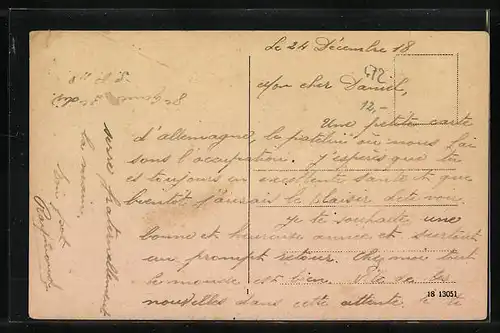 Le 24 Décembre 18
Mon cher Daniel,
12,-
Une petite carte
d'allemagne, le patelin où nous
sous l'occupation. J'espère que tu
es toujours en excellente santé et que
bientôt j'aurais le plaisir de te voir.
Je te souhaite une
bonne et heureuse année et surtout
un prompt retour. Chez moi tout
le monde est bien.
nouvelles dans cette attente je te
serre fraternellement
la main.
Ton pote
Raymond
1
18 13051